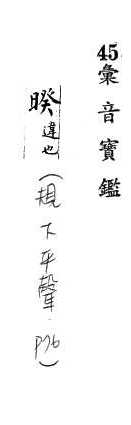 45彙音寶鑑
暌違也(規下平聲.P76)